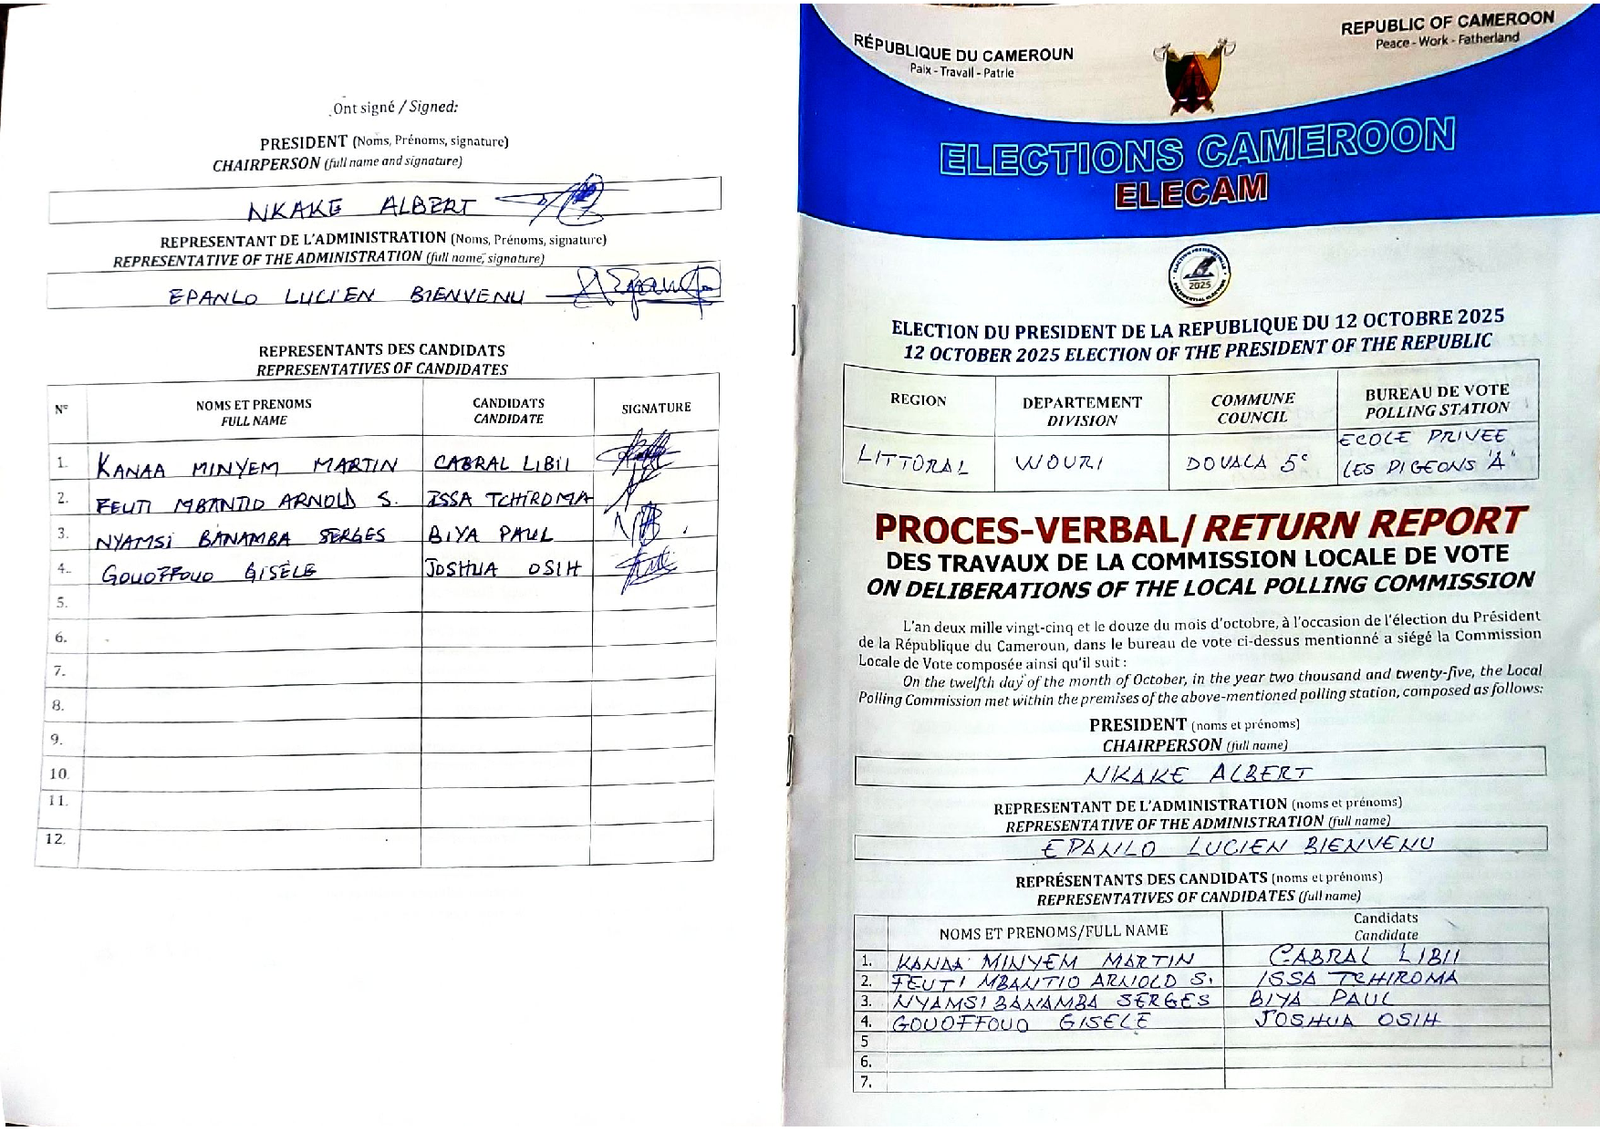 Ont signé / Signed:
PRESIDENT (Noms, Prénoms, signature)
CHAIRPERSON (full name and signature)
NKAKE ALBERT
REPRESENTANT DE L'ADMINISTRATION (Noms, Prénoms, signature)
REPRESENTATIVE OF THE ADMINISTRATION (full name, signature)
EPANLO LUCIEN BIENVENU
REPRESENTANTS DES CANDIDATS
REPRESENTATIVES OF CANDIDATES
N° NOMS ET PRENOMS CANDIDATS SIGNATURE
FULL NAME CANDIDATE
1. KANAA MINYEM MARTIN CABRAL LIBII
2. FEUTI MBANTIO ARNOLD S. ISSA TCHIROMA
3. NYAMSI BANAMBA SERGES BIYA PAUL
4. GOUOFFOUO GISÈLE JOSHUA OSIH
5.
6.
7.
8.
9.
10.
11.
12.
RÉPUBLIQUE DU CAMEROUN
Paix - Travail - Patrie
REPUBLIC OF CAMEROON
Peace - Work - Fatherland
ELECTIONS CAMEROON
ELECAM
2025
ELECTION DU PRESIDENT DE LA REPUBLIQUE DU 12 OCTOBRE 2025
12 OCTOBER 2025 ELECTION OF THE PRESIDENT OF THE REPUBLIC
REGION DEPARTEMENT COMMUNE BUREAU DE VOTE
DIVISION COUNCIL POLLING STATION
LITTORAL WOURI DOUALA 5e ECOLE PRIVEE
LES PIGEONS "A"
PROCES-VERBAL/ RETURN REPORT
DES TRAVAUX DE LA COMMISSION LOCALE DE VOTE
ON DELIBERATIONS OF THE LOCAL POLLING COMMISSION
L'an deux mille vingt-cinq et le douze du mois d'octobre, à l'occasion de l'élection du Président
de la République du Cameroun, dans le bureau de vote ci-dessus mentionné a siégé la Commission
Locale de Vote composée ainsi qu'il suit :
On the twelfth day of the month of October, in the year two thousand and twenty-five, the Local
Polling Commission met within the premises of the above-mentioned polling station, composed as follows:
PRESIDENT (noms et prénoms)
CHAIRPERSON (full name)
NKAKE ALBERT
REPRESENTANT DE L'ADMINISTRATION (noms et prénoms)
REPRESENTATIVE OF THE ADMINISTRATION (full name)
EPANLO LUCIEN BIENVENU
REPRÉSENTANTS DES CANDIDATS (noms et prénoms)
REPRESENTATIVES OF CANDIDATES (full name)
NOMS ET PRENOMS/FULL NAME Candidats
Candidate
1. KANAA MINYEM MARTIN CABRAL LIBII
2. FEUTI MBANTIO ARNOLD S. ISSA TCHIROMA
3. NYAMSI BANAMBA SERGES BIYA PAUL
4. GOUOFFOUO GISELE JOSHUA OSIH
5
6.
7.